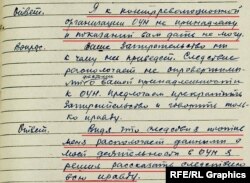 Ответ. Я к контрреволюционной
организации ОУН не принадлежу
и показаний вам дать не могу.
Вопрос: Ваше запирательство ни
к чему не приведет. Следствие
располагает
вашей принадлежности
к ОУН. Предлагаем прекратить
запирательство и говорить толь
ко правду.
Ответ. Видя что следствие
меня располагает фактами о
моей деятельности в ОУН я
решил рассказать следствию
всю правду.
RFE/RL Graphics